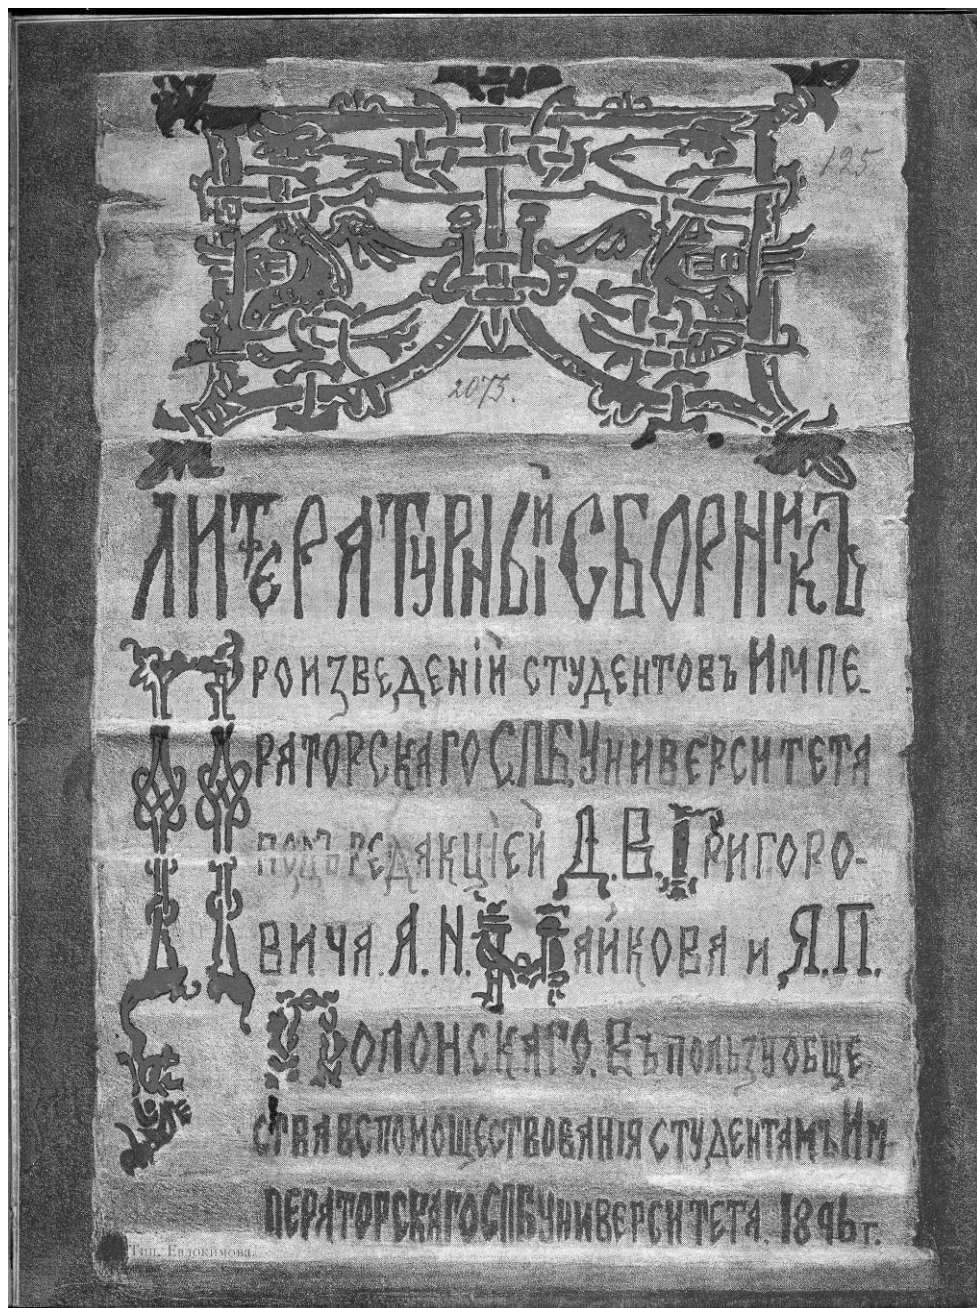 125.
2075.
ЛИТЕРАТУРНЫЙ СБОРНИКЪ
ПРОИЗВЕДЕНІЙ СТУДЕНТОВЪ ИМПЕ-
РАТОРСКАГО С.П.Б. УНИВЕРСИТЕТА
ПОДЪ РЕДАКЦІЕЙ Д. В. ГРИГОРО-
ВИЧА. А. Н. МАЙКОВА и Я. П.
ПОЛОНСКАГО. ВЪ ПОЛЬЗУ ОБЩЕ-
СТВА ВСПОМОЩЕСТВОВАНІЯ СТУДЕНТАМЪ ИМ-
ПЕРАТОРСКАГО СПБ УНИВЕРСИТЕТА. 1896 г.
Тип. Евдокимова.